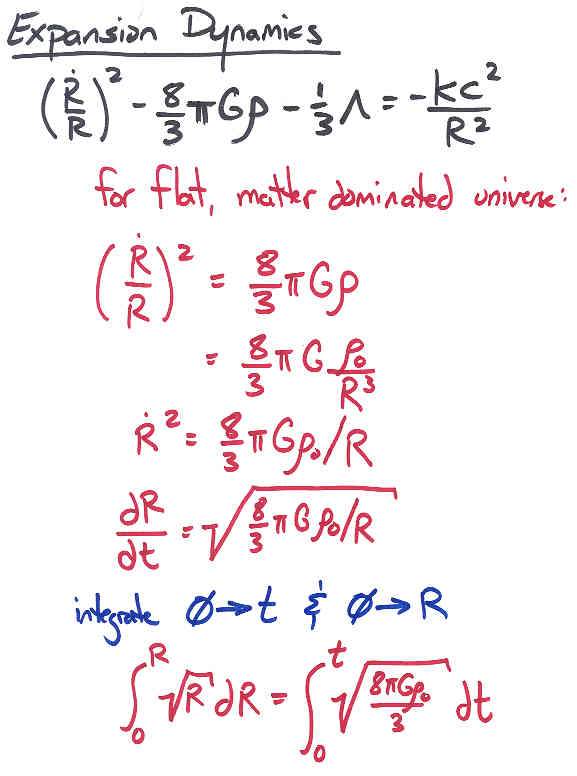 Expansion Dynamics
(Ṙ/R)² - 8/3 πGρ - 1/3 Λ = -kc²/R²
for flat, matter dominated universe:
(Ṙ/R)² = 8/3 πGρ
= 8/3 πG ρ₀/R³
Ṙ² = 8/3 πGρ₀/R
dR/dt = √(8/3 πGρ₀/R)
integrate 0→t & 0→R
∫₀ᴿ √R dR = ∫₀ᵗ √(8πGρ₀/3) dt